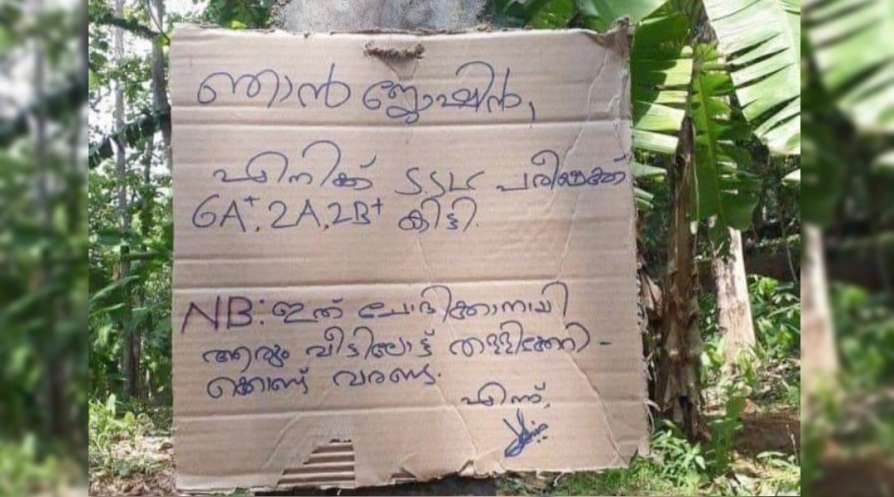 ഞാൻ ജ്യോഷിൻ,
എനിക്ക് S.S.L.C പരീക്ഷക്ക്
6A+, 2A, 2B+ കിട്ടി.
NB: ഇത് ചോദിക്കാനായി
ആരും വീട്ടിലോട്ട് തള്ളിക്കേറി-
ക്കൊണ്ട് വരണ്ട.
എന്ന്,